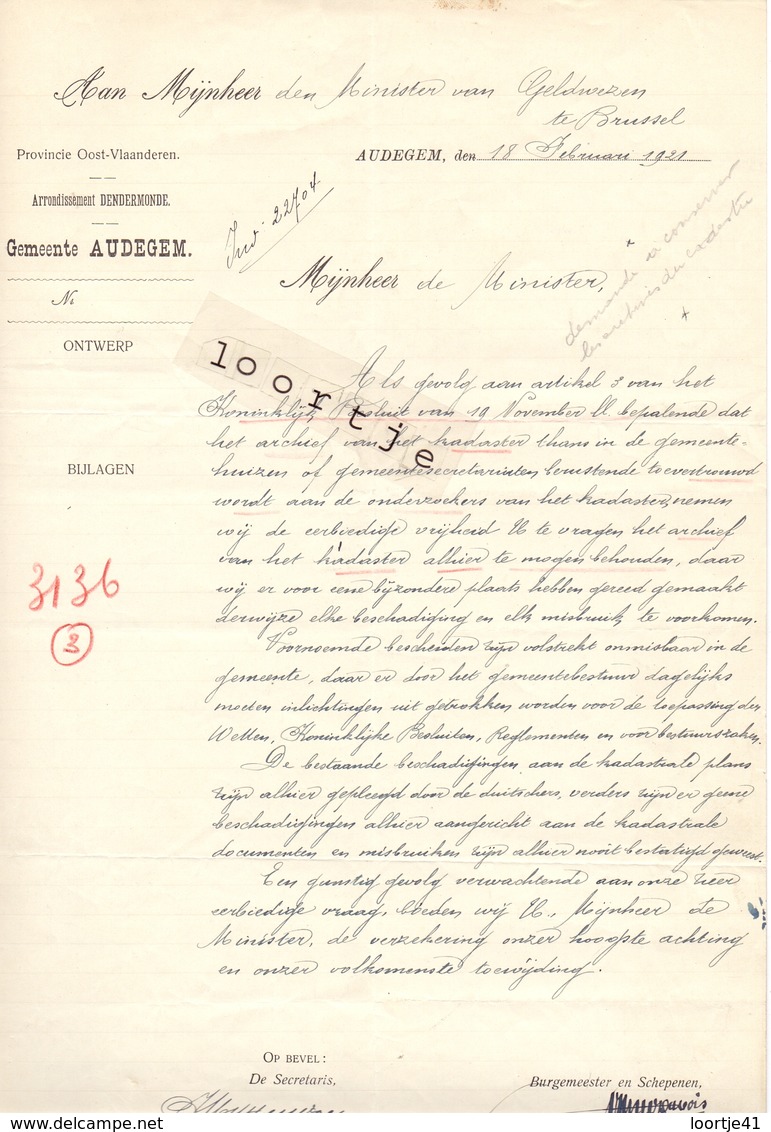 Aan Mijnheer den Minister van Geldwezen
te Brussel
Provincie Oost-Vlaanderen.
AUDEGEM, den 18 Februari 1921
Arrondissement DENDERMONDE.
Gemeente AUDEGEM.
Ind. 22704
demande à conserver
les archives du cadastre
No
Mijnheer de Minister,
ONTWERP
loortje
Als gevolg aan artikel 3 van het
Koninklijk Besluit van 19 November ll. bepalende dat
het archief van het kadaster thans in de gemeente-
BIJLAGEN
huizen of gemeentesecretariaten berustende toevertrouwd
wordt aan de onderzoekers van het kadaster, nemen
wij de eerbiedige vrijheid U te vragen het archief
van het kadaster alhier te mogen behouden, daar
3136
wij er voor eene bijzondere plaats hebben gereed gemaakt
derwijze elke beschadiging en elk misbruik te voorkomen.
3
Voornoemde bescheiden zijn volstrekt onmisbaar in de
gemeente, daar er door het gemeentebestuur dagelijks
moeten inlichtingen uit getrokken worden voor de toepassing der
Wetten, Koninklijke Besluiten, Reglementen en voor bestuurszaken.
De bestaande beschadigingen aan de kadastrale plans
zijn alhier gepleegd door de duitschers, verders zijn er geene
beschadigingen alhier aangericht aan de kadastrale
documenten en misbruiken zijn alhier nooit bestatigd geweest.
Een gunstig gevolg verwachtende aan onze zeer
eerbiedige vraag, bieden wij U, Mijnheer de
Minister, de verzekering onzer hoogste achting
en onzer volkomenste toewijding.
OP BEVEL :
De Secretaris,
Burgemeester en Schepenen,
loortje41